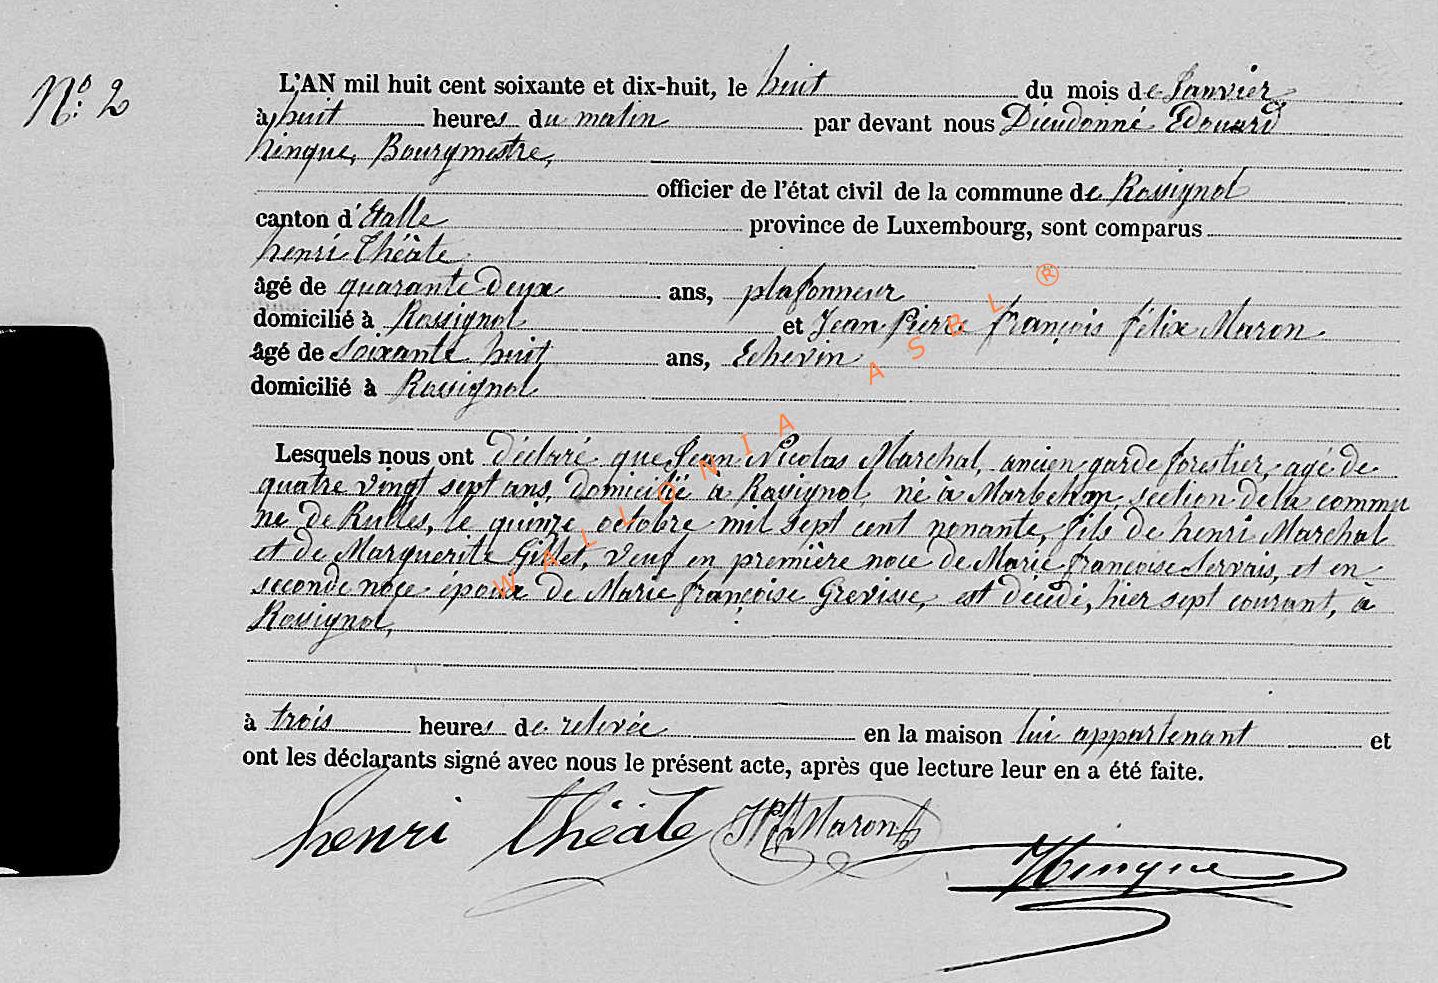 N.° 2
L'AN mil huit cent soixante et dix-huit, le huit du mois de Janvier
à huit heures du matin par devant nous Dieudonné Edouard
hinque, Bourgmestre,
officier de l'état civil de la commune de Rossignol
canton d'Etalle province de Luxembourg, sont comparus
henri Théâte
âgé de quarante deux ans, plafonneur
domicilié à Rossignol et Jean Pierre françois félix Maron
âgé de soixante huit ans, Echevin
domicilié à Rossignol
Lesquels nous ont déclaré que Jean Nicolas Marchal, ancien garde forestier, agé de
quatre vingt sept ans, domicilié à Rossignol, né à Marbehan, section de la commu
ne de Rulles, le quinze octobre mil sept cent nonante, fils de henri Marchal
et de Marguerite Gillet, veuf en première noce de Marie françoise Servais, et en
seconde noce époux de Marie françoise Grevisse, est décédé, hier sept courant, à
Rossignol,
à trois heures de relevée en la maison lui appartenant et
ont les déclarants signé avec nous le présent acte, après que lecture leur en a été faite.
henri théâte JPff Maron Hinque
WALLONIA ASBL ®